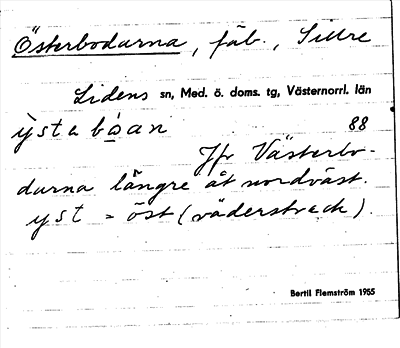 Österbodarna, fäb., Sillre
Lidens sn, Med. ö. doms. tg, Västernorrl. län
ỳsta bòan 88
Jfr Västerbo-
darna längre åt nordväst.
yst = öst (väderstreck).
Bertil Flemström 1955